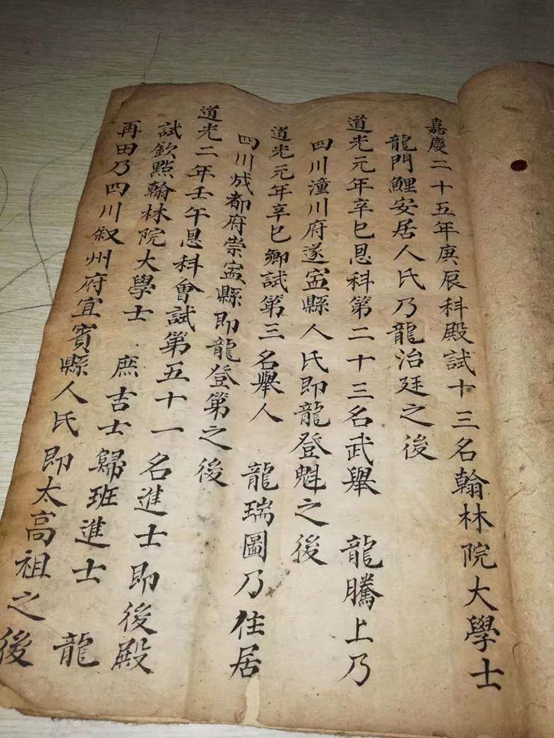 嘉慶二十五年庚辰科殿試十三名翰林院大學士
龍門鯉安居人氏乃龍治廷之後
道光元年辛巳恩科第二十三名武舉　龍騰上乃
四川潼川府遂寍縣人氏即龍登魁之後
道光元年辛巳鄉試第三名舉人　龍瑞圖乃住居
四川成都府崇寍縣即龍登第之後
道光二年壬午恩科會試第五十一名進士即後殿
試欽點翰林院大學士　庶吉士歸班進士　龍
再田乃四川叙州府宜賓縣人氏即太高祖之後